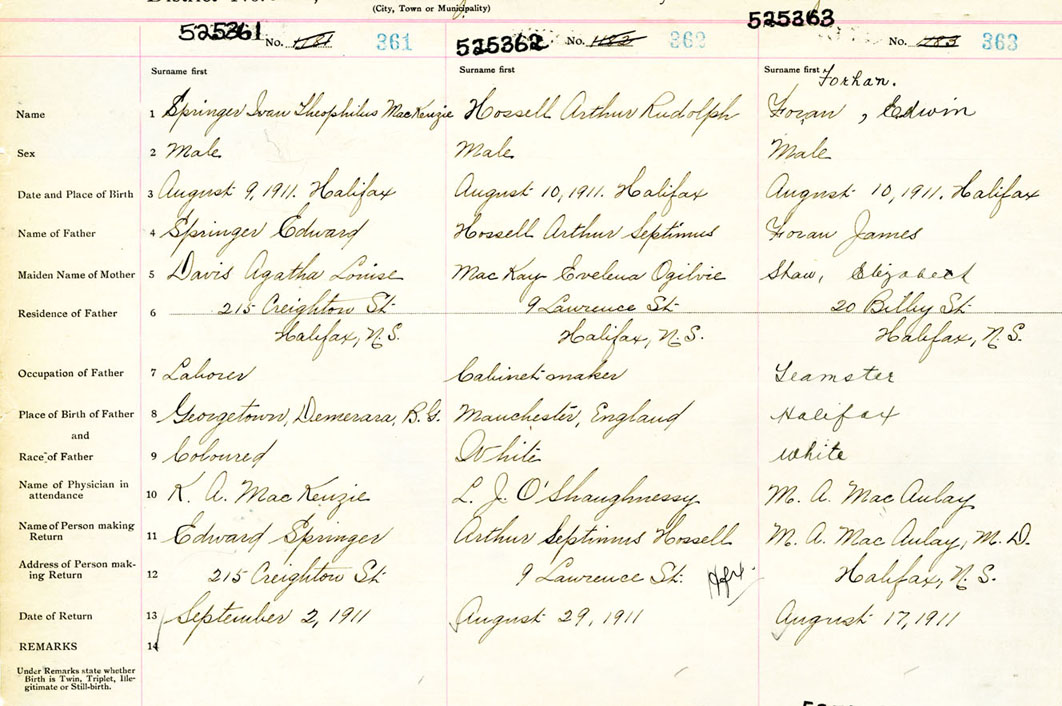 District No.
(City, Town or Municipality)
525361 No. 361
525362 No. 1182 362
525363 No. 363
Surname first Surname first Surname first Forhan.
Name 1 Springer Ivan Theophilus MacKenzie Hossell Arthur Rudolph Foran , Edwin
Sex 2 Male Male Male
Date and Place of Birth 3 August 9, 1911. Halifax August 10, 1911. Halifax August 10, 1911. Halifax
Name of Father 4 Springer Edward Hossell Arthur Septimus Foran James
Maiden Name of Mother 5 Davis Agatha Louise MacKay Evelena Ogilvie Shaw, Elizabeth
Residence of Father 6 215 Creighton St. 9 Lawrence St. 20 Bilby St.
Halifax, N.S. Halifax, N.S. Halifax, N.S.
Occupation of Father 7 Laborer Cabinet-maker Teamster
Place of Birth of Father 8 Georgetown, Demerara, B.G. Manchester, England Halifax
and
Race of Father 9 Coloured White White
Name of Physician in
attendance 10 K. A. MacKenzie L. J. O'Shaughnessy M. A. MacAulay
Name of Person making
Return 11 Edward Springer Arthur Septimus Hossell M. A. MacAulay, M.D.
Address of Person mak-
ing Return 12 215 Creighton St. 9 Lawrence St. Hfx. Halifax, N.S.
Date of Return 13 September 2, 1911 August 29, 1911 August 17, 1911
REMARKS 14
Under Remarks state whether
Birth is Twin, Triplet, Ille-
gitimate or Still-birth.